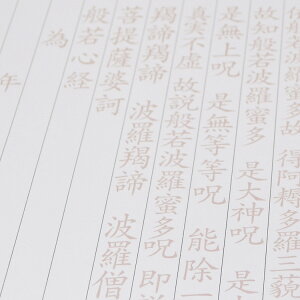 般若波羅 得阿耨多羅三藐
故知般若波羅蜜多 是大神呪 是
是無上呪 是無等等呪 能除一
真実不虚 故説般若波羅蜜多呪 即説
羯諦羯諦 波羅羯諦 波羅僧
菩提薩婆訶
般若心経
為
年